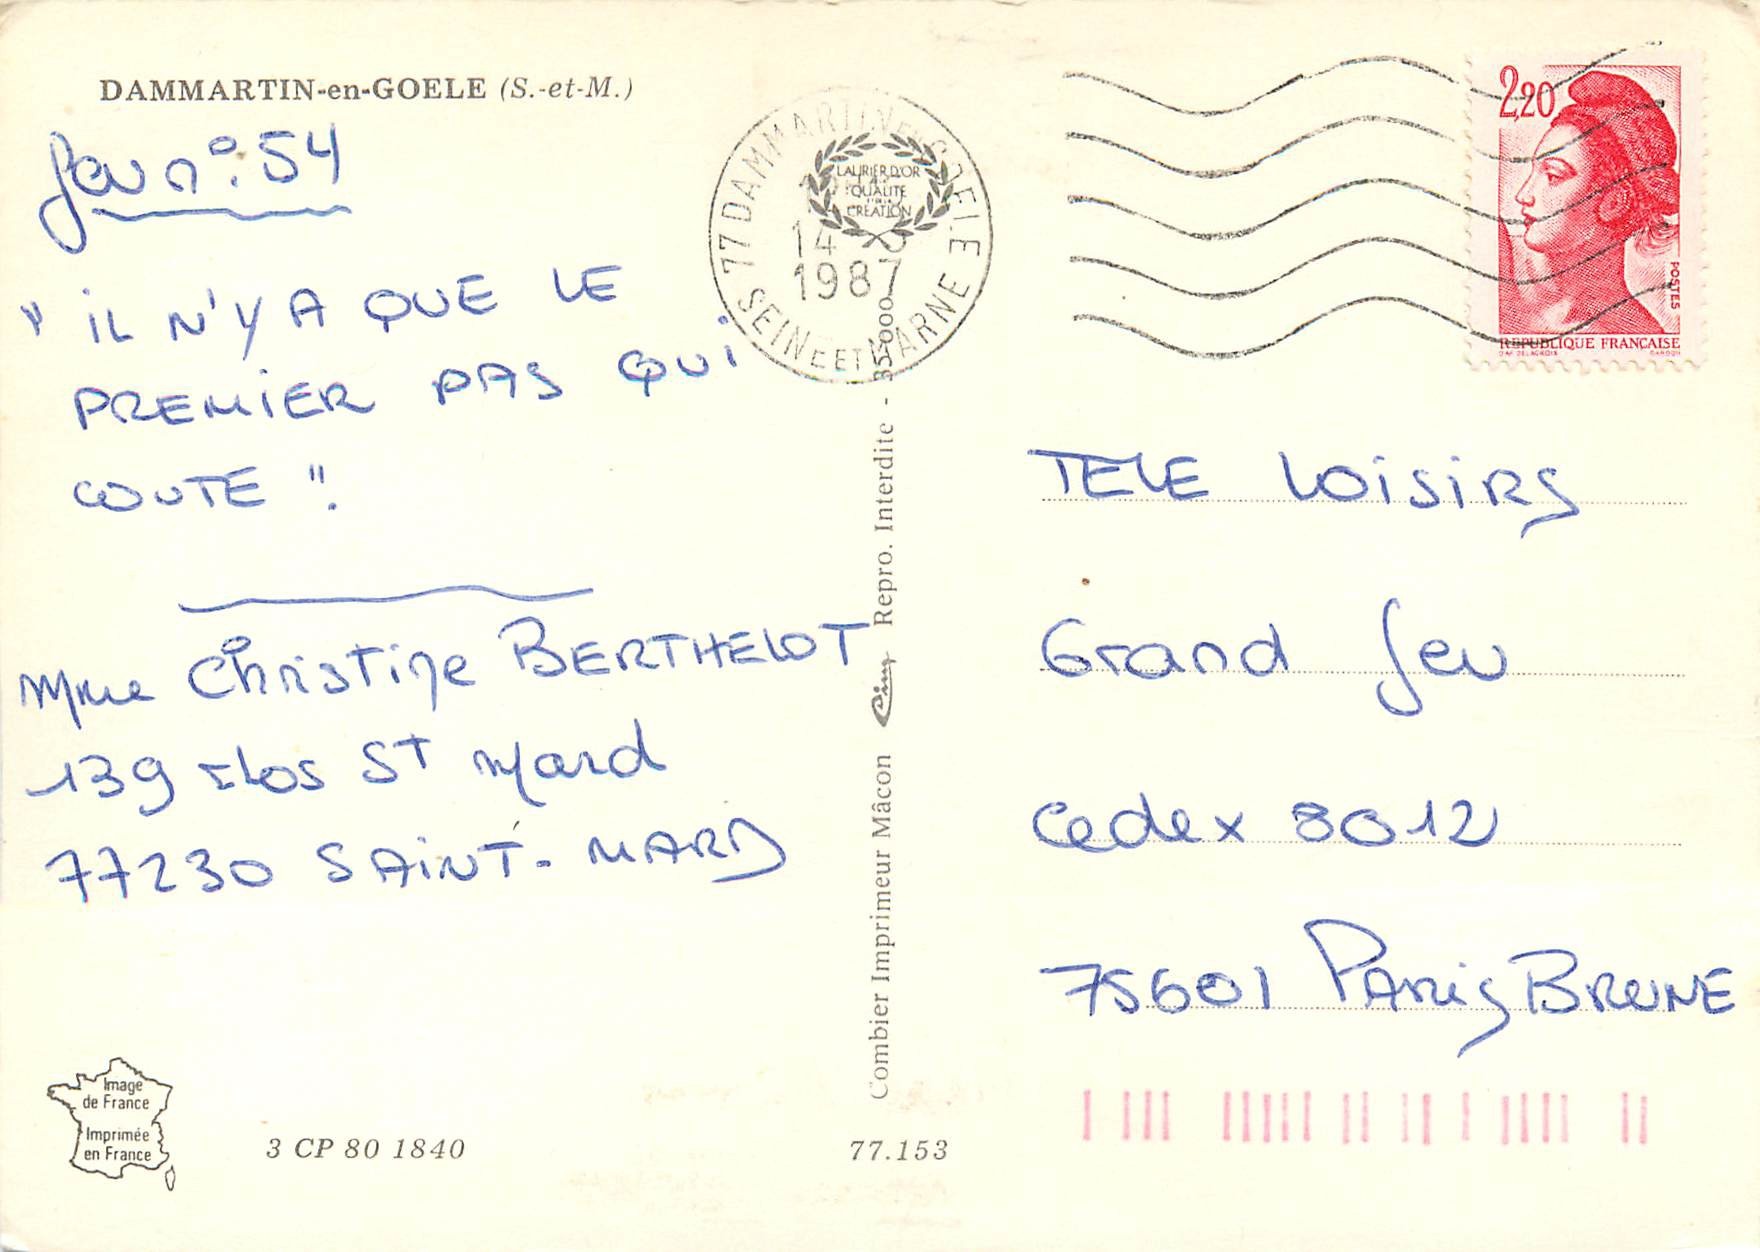 DAMMARTIN-en-GOELE (S.-et-M.)
Jeu n°: 54
" IL N'Y A QUE LE
PREMIER PAS QUI
COUTE ".
Mme Christine BERTHELOT
139 clos ST Mard
77230 SAINT-MARD
Image
de France
Imprimée
en France
3 CP 80 1840
77.153
Combier Imprimeur Mâcon Cim Repro. Interdite - 35-000
77 DAMMARTIN EN GOELE
SEINE ET MARNE
14
1987
LAURIER D'OR
QUALITE
CREATION
2,20
POSTES
REPUBLIQUE FRANÇAISE
D'AP. DELACROIX GANDON
TELE LOISIRS
Grand Jeu
Cedex 8012
75601 PARIS BRUNE